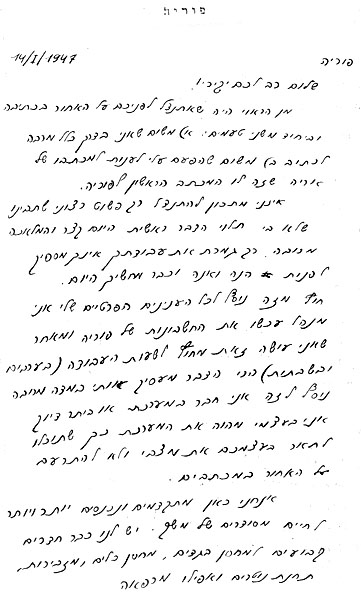 פוריה
פוריה 14/I/1947
שלום רב לכם יקירי!
מן הראוי היה שאתנצל לפניכם על האחור בכתיבה
וביחיד משני טעמים: א) משום שאני בדרך כלל מרבה
לכתוב ב) משום שהפעם עלי לענות למכתבו של
אריה שזה לו המכתב הראשון לפוריה.
אינני מתכוון להתנצל רק פשוט רצוני שתבינו
שלא בי תלוי הדבר ראשית היום קצר והמלאכה
מרובה. רק גמרת את עבודתך אינך מספיק
לפנות הנה ואנה וכבר מחשיך היום.
חוץ מזה נוסף לכל הענינים הפרטיים שלי אני
מנהל עכשו את החשבונות של פוריה ומאחר
שאני עושה זאת מחוץ לשעות העבודה (בערבים
ובשבתות) הרי הדבר מעסיק אותי במדה מרובה
נוסף לזה אני חבר במערכת או ביתר דיוק
אני בעצמי מהוה את המערכת כך שתוכלו
לתאר בעצמכם את מצבי ולא להתרעם
על האחור במכתבים.
אנחנו כאן מתקדמים ונכנסים יותר ויותר
לחיים מסודרים של משק. יש לנו כבר חדרים
קבועים למחסן בגדים, מחסן כלים, ומזכירות,
תחנת נוטרים ואפילו מרפאה